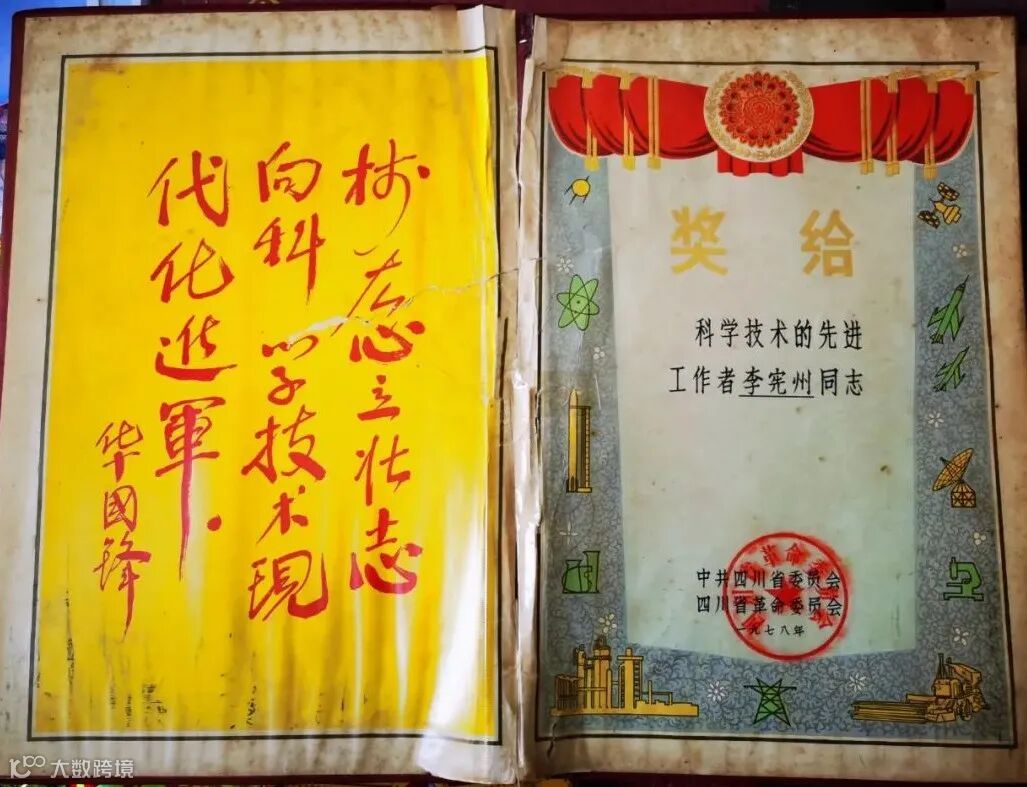 树雄心立壮志
向科学技术現
代化進軍.
华國锋
奖给
科学技术的先进
工作者李宪州同志
中共四川省委员会
四川省革命委员会
一九七八年
大数跨境